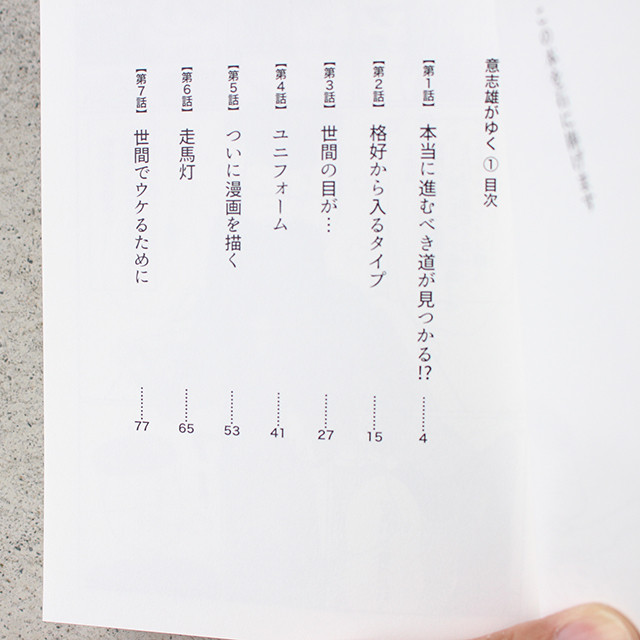 意志雄がゆく ① 目次
【第1話】 本当に進むべき道が見つかる!? ……… 4
【第2話】 格好から入るタイプ ……… 15
【第3話】 世間の目が… ……… 27
【第4話】 ユニフォーム ……… 41
【第5話】 ついに漫画を描く ……… 53
【第6話】 走馬灯 ……… 65
【第7話】 世間でウケるために ……… 77